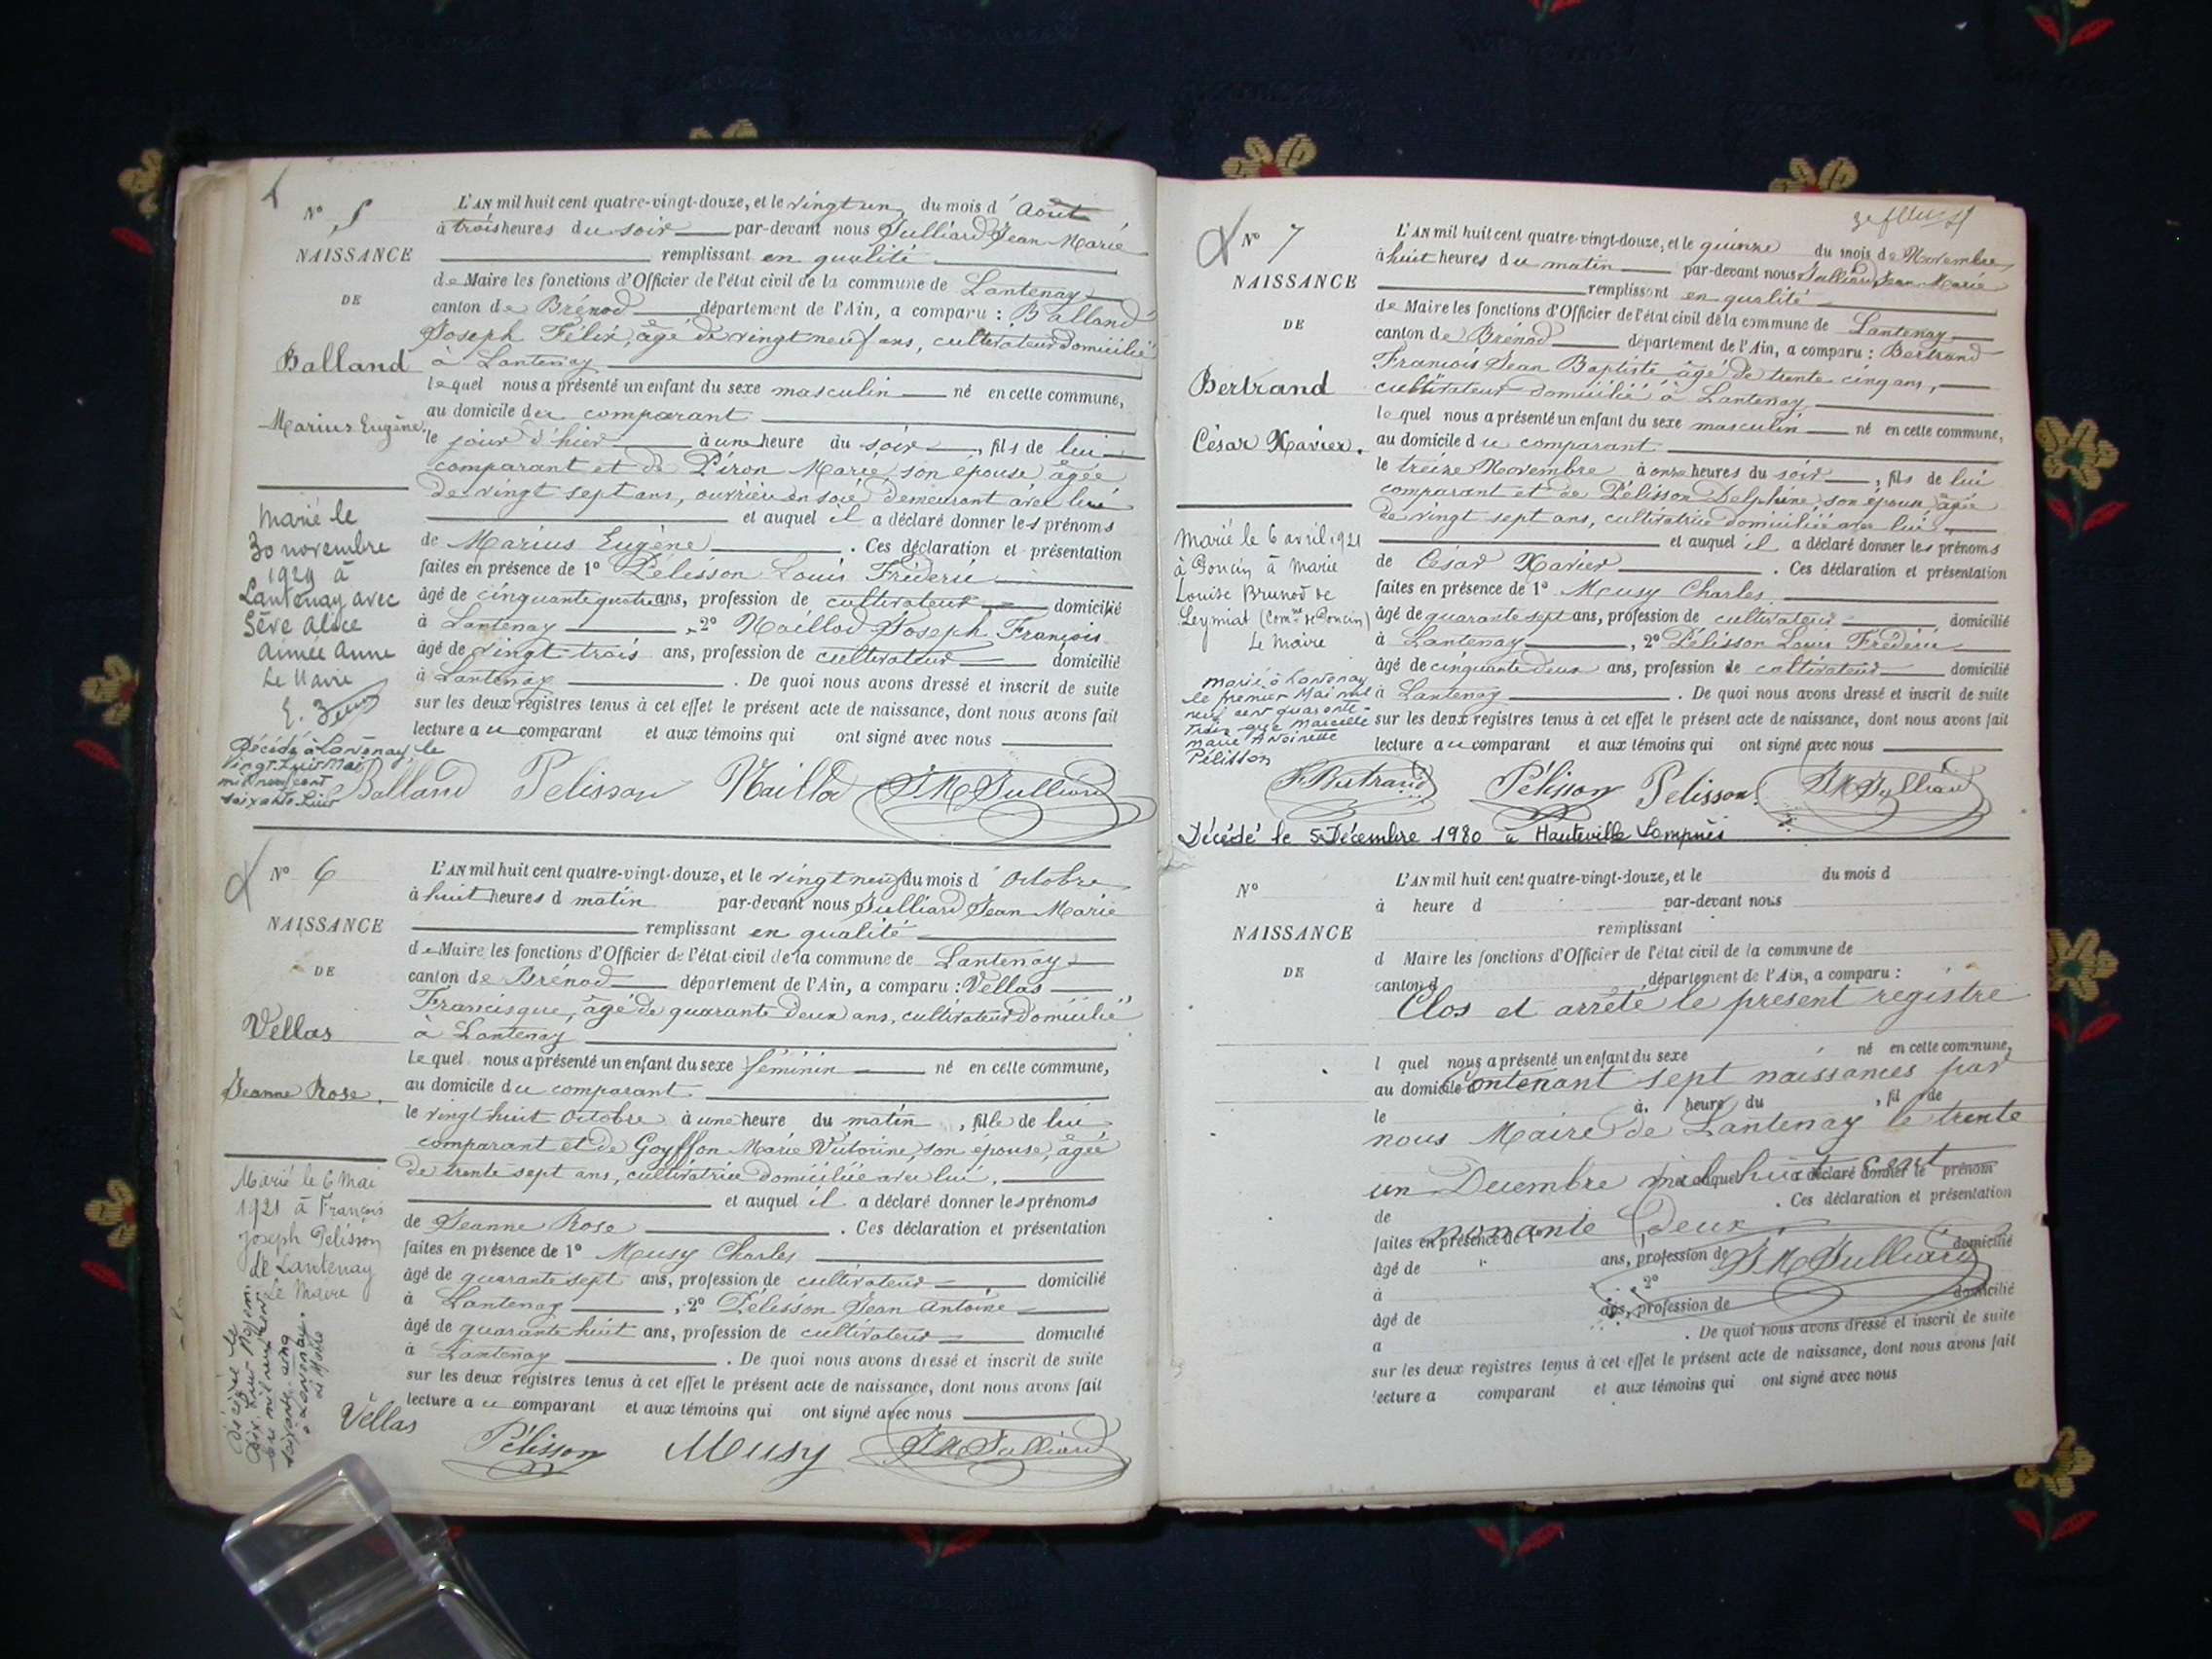 N° 5
NAISSANCE
DE
Balland
Marius Eugène.
L'AN mil huit cent quatre-vingt-douze, et le vingt un du mois d'Aout
à trois heures du soir par-devant nous Julliard Jean Marie
remplissant en qualité
de Maire les fonctions d'Officier de l'état civil de la commune de Lantenay
canton de Brénod département de l'Ain, a comparu : Balland
Joseph Félix, âgé de vingt neuf ans, cultivateur domicilié
à Lantenay
lequel nous a présenté un enfant du sexe masculin né en cette commune,
au domicile du comparant
le jour d'hier à une heure du soir, fils de lui
comparant et de Piron Marie son épouse âgée
de vingt sept ans, ouvrière en soie demeurant avec lui
et auquel il a déclaré donner les prénoms
de Marius Eugène. Ces déclaration et présentation
faites en présence de 1° Pélisson Louis Fréderic
âgé de cinquante quatre ans, profession de cultivateur domicilié
à Lantenay, 2° Maillod Joseph François
âgé de vingt trois ans, profession de cultivateur domicilié
à Lantenay. De quoi nous avons dressé et inscrit de suite
sur les deux registres tenus à cet effet le présent acte de naissance, dont nous avons fait
lecture au comparant et aux témoins qui ont signé avec nous
Balland Pelisson Maillod JM Julliard
Marié le
30 novembre
1929 à
Lantenay avec
Sève Alice
Aimée Anne
Le Maire
Décédé à Lantenay, le
vingt-huit Mai
mil neuf cent
soixante huit
N° 6
NAISSANCE
DE
Vellas
Jeanne Rose.
L'AN mil huit cent quatre-vingt-douze, et le vingt neuf du mois d'Octobre
à huit heures d matin par-devant nous Julliard Jean Marie
remplissant en qualité
de Maire les fonctions d'Officier de l'état civil de la commune de Lantenay
canton de Brénod département de l'Ain, a comparu : Vellas
Francisque, âgé de quarante deux ans, cultivateur domicilié
à Lantenay
lequel nous a présenté un enfant du sexe féminin né en cette commune,
au domicile du comparant
le vingt huit Octobre à une heure du matin, fille de lui
comparant et de Goyffon Marie Victorine, son épouse, âgée
de trente sept ans, cultivatrice domiciliée avec lui,
et auquel il a déclaré donner les prénoms
de Jeanne Rose. Ces déclaration et présentation
faites en présence de 1° Meusy Charles
âgé de quarante sept ans, profession de cultivateur domicilié
à Lantenay, 2° Pélisson Jean Antoine
âgé de quarante huit ans, profession de cultivateur domicilié
à Lantenay. De quoi nous avons dressé et inscrit de suite
sur les deux registres tenus à cet effet le présent acte de naissance, dont nous avons fait
lecture au comparant et aux témoins qui ont signé avec nous
Vellas Pélisson Meusy JM Julliard
Marié le 6 Mai
1921 à François
Joseph Pélisson
de Lantenay
Le Maire
Décédée le
Dix huit
mil neuf cent
soixante cinq
à Lantenay.
Le Maire
N° 7
NAISSANCE
DE
Bertrand
César Xavier.
L'AN mil huit cent quatre-vingt-douze, et le quinze du mois de Novembre
à huit heures du matin par-devant nous Julliard Jean Marie
remplissant en qualité
de Maire les fonctions d'Officier de l'état civil de la commune de Lantenay
canton de Brénod département de l'Ain, a comparu : Bertrand
François Jean Baptiste âgé de trente cinq ans,
cultivateur domicilié à Lantenay
lequel nous a présenté un enfant du sexe masculin né en cette commune,
au domicile du comparant
le treize Novembre à onze heures du soir, fils de lui
comparant et de Pélisson Delphine, son épouse, âgée
de vingt sept ans, cultivatrice domiciliée avec lui
et auquel il a déclaré donner les prénoms
de César Xavier. Ces déclaration et présentation
faites en présence de 1° Meusy Charles
âgé de quarante sept ans, profession de cultivateur domicilié
à Lantenay, 2° Pélisson Louis Fréderic
âgé de cinquante deux ans, profession de cultivateur domicilié
à Lantenay. De quoi nous avons dressé et inscrit de suite
sur les deux registres tenus à cet effet le présent acte de naissance, dont nous avons fait
lecture au comparant et aux témoins qui ont signé avec nous
F. Bertrand Pélisson Pelisson JM Julliard
Marié le 6 avril 1921
à Poncin à Marie
Louise Brunod de
Leymiat (Comne de Poncin)
Le Maire
Marié à Lantenay
le premier Mai mil
neuf cent quarante-
trois avec Marcelle
Marie Antoinette
Pélisson
Décédé le 5 Décembre 1980 à Hauteville Lompnès
N°
NAISSANCE
DE
L'AN mil huit cent quatre-vingt-douze, et le du mois d
à heure d par-devant nous
remplissant
d Maire les fonctions d'Officier de l'état civil de la commune de
canton d département de l'Ain, a comparu :
Clos et arrêté le present registre
l quel nous a présenté un enfant du sexe né en cette commune,
au domicile d
contenant sept naissances par
le à heure du , fil de
nous Maire de Lantenay le trente
un Decembre mil huit cent
et auquel a déclaré donner le prénom
de . Ces déclaration et présentation
nonante deux.
faites en présence de 1°
âgé de ans, profession de domicilié
JM Julliard
à , 2°
âgé de ans, profession de domicilié
à . De quoi nous avons dressé et inscrit de suite
sur les deux registres tenus à cet effet le présent acte de naissance, dont nous avons fait
lecture a comparant et aux témoins qui ont signé avec nous